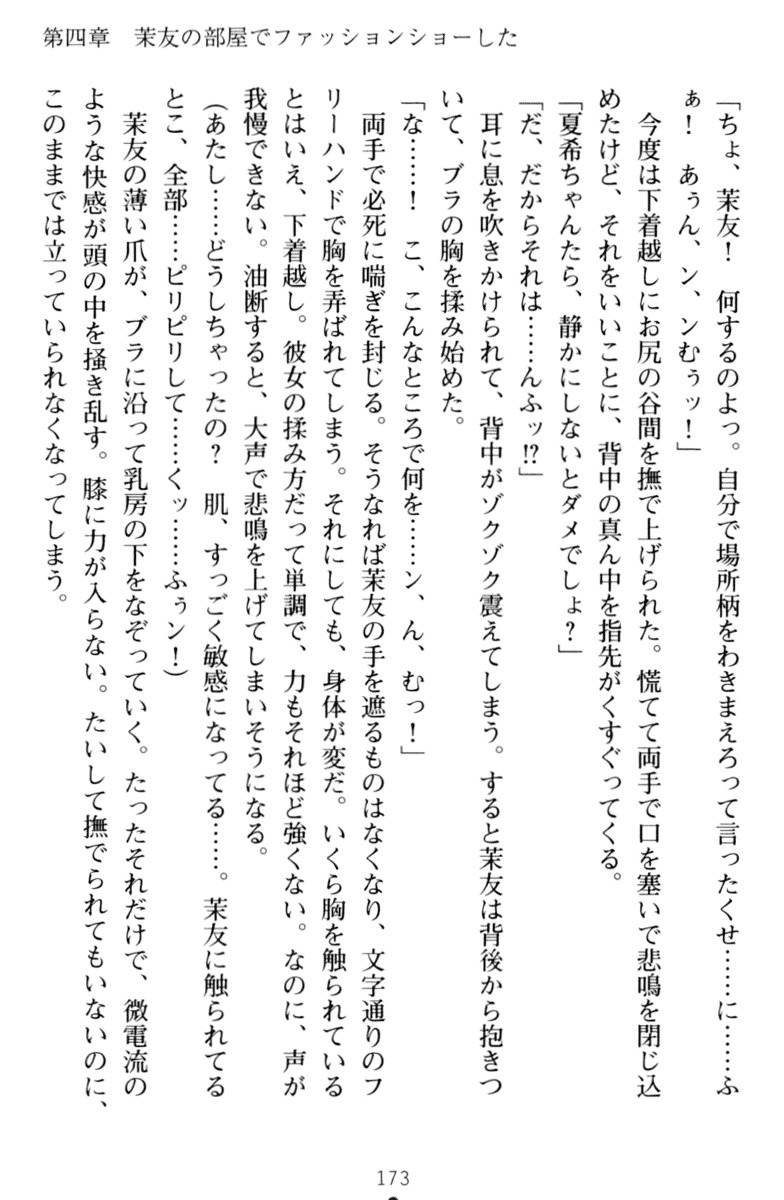 第四章　茉友の部屋でファッションショーした
「ちょ、茉友！　何するのよっ。自分で場所柄をわきまえろって言ったくせ……に……ふ
ぁ！　あぅん、ン、ンむぅッ！」
　今度は下着越しにお尻の谷間を撫で上げられた。慌てて両手で口を塞いで悲鳴を閉じ込
めたけど、それをいいことに、背中の真ん中を指先がくすぐってくる。
「夏希ちゃんたら、静かにしないとダメでしょ？」
「だ、だからそれは……んふッ!?」
　耳に息を吹きかけられて、背中がゾクゾク震えてしまう。すると茉友は背後から抱きつ
いて、ブラの胸を揉み始めた。
「な……！　こ、こんなところで何を……ン、ん、むっ！」
　両手で必死に喘ぎを封じる。そうなれば茉友の手を遮るものはなくなり、文字通りのフ
リーハンドで胸を弄ばれてしまう。それにしても、身体が変だ。いくら胸を触られている
とはいえ、下着越し。彼女の揉み方だって単調で、力もそれほど強くない。なのに、声が
我慢できない。油断すると、大声で悲鳴を上げてしまいそうになる。
（あたし……どうしちゃったの？　肌、すっごく敏感になってる……。茉友に触られてる
とこ、全部……ピリピリして……くッ……ふぅン！）
　茉友の薄い爪が、ブラに沿って乳房の下をなぞっていく。たったそれだけで、微電流の
ような快感が頭の中を掻き乱す。膝に力が入らない。たいして撫でられてもいないのに、
このままでは立っていられなくなってしまう。
173